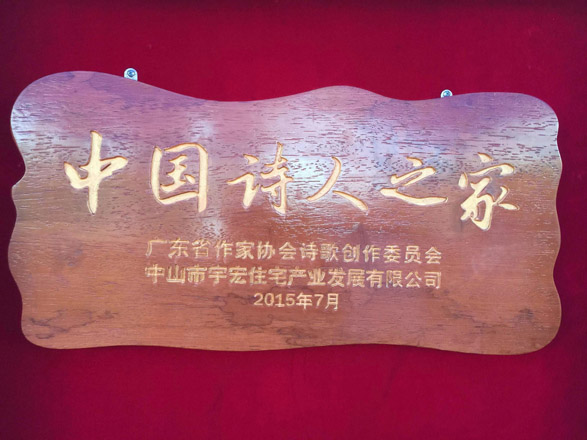 中国诗人之家
广东省作家协会诗歌创作委员会
中山市宇宏住宅产业发展有限公司
2015年7月